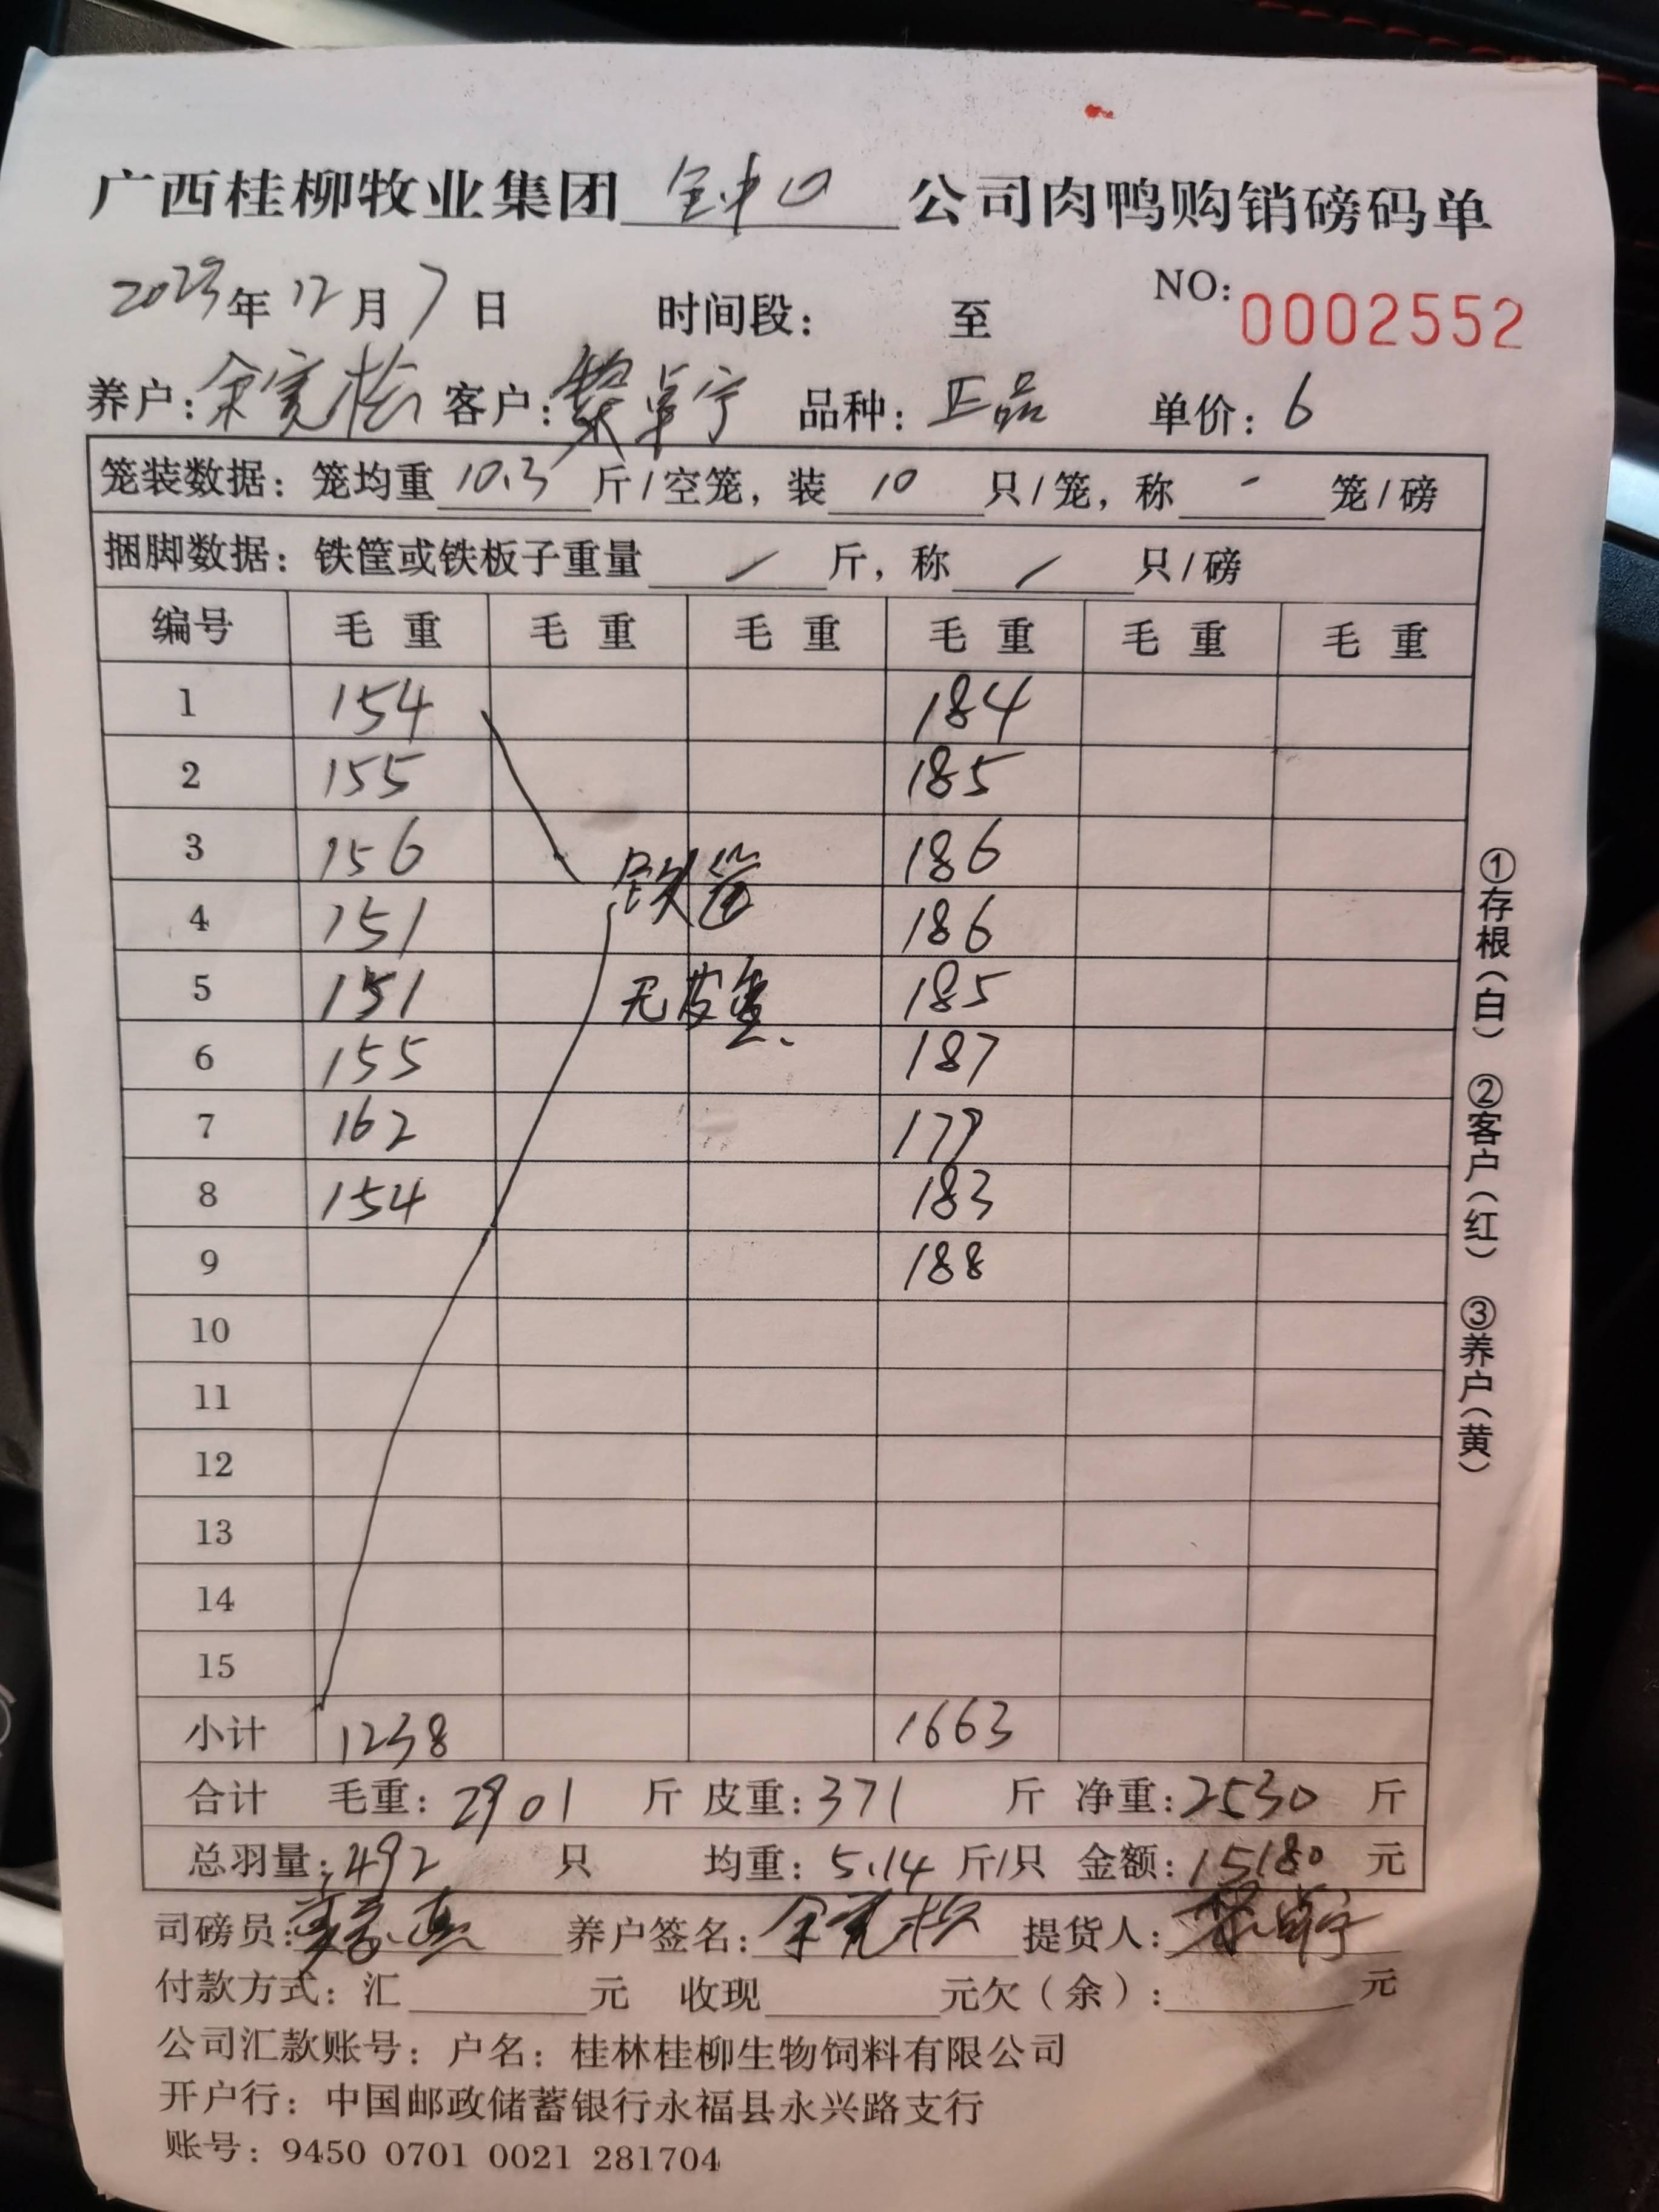 广西桂柳牧业集团 公司肉鸭购销磅码单
2023年12月7日 时间段: 至 NO:0002552
养户:余宽松 客户:黎卓宁 品种:正品 单价:6
笼装数据:笼均重10.3斤/空笼,装10只/笼,称-笼/磅
捆脚数据:铁筐或铁板子重量/斤,称/只/磅
编号 毛重 毛重 毛重 毛重 毛重 毛重
1 154 184
2 155 185
3 156 186
4 151 铁筐 186
5 151 无皮重、 185
6 155 187
7 162 179
8 154 183
9 188
10
11
12
13
14
15
小计 1238 1663
合计 毛重:2901斤 皮重:371斤 净重:2530斤
总羽量:492只 均重:5.14斤/只 金额:15180元
司磅员: 养户签名:余宽松 提货人:黎卓宁
付款方式:汇 元 收现 元欠(余): 元
公司汇款账号:户名:桂林桂柳生物饲料有限公司
开户行:中国邮政储蓄银行永福县永兴路支行
账号:9450 0701 0021 281704
①存根(白) ②客户(红) ③养户(黄)